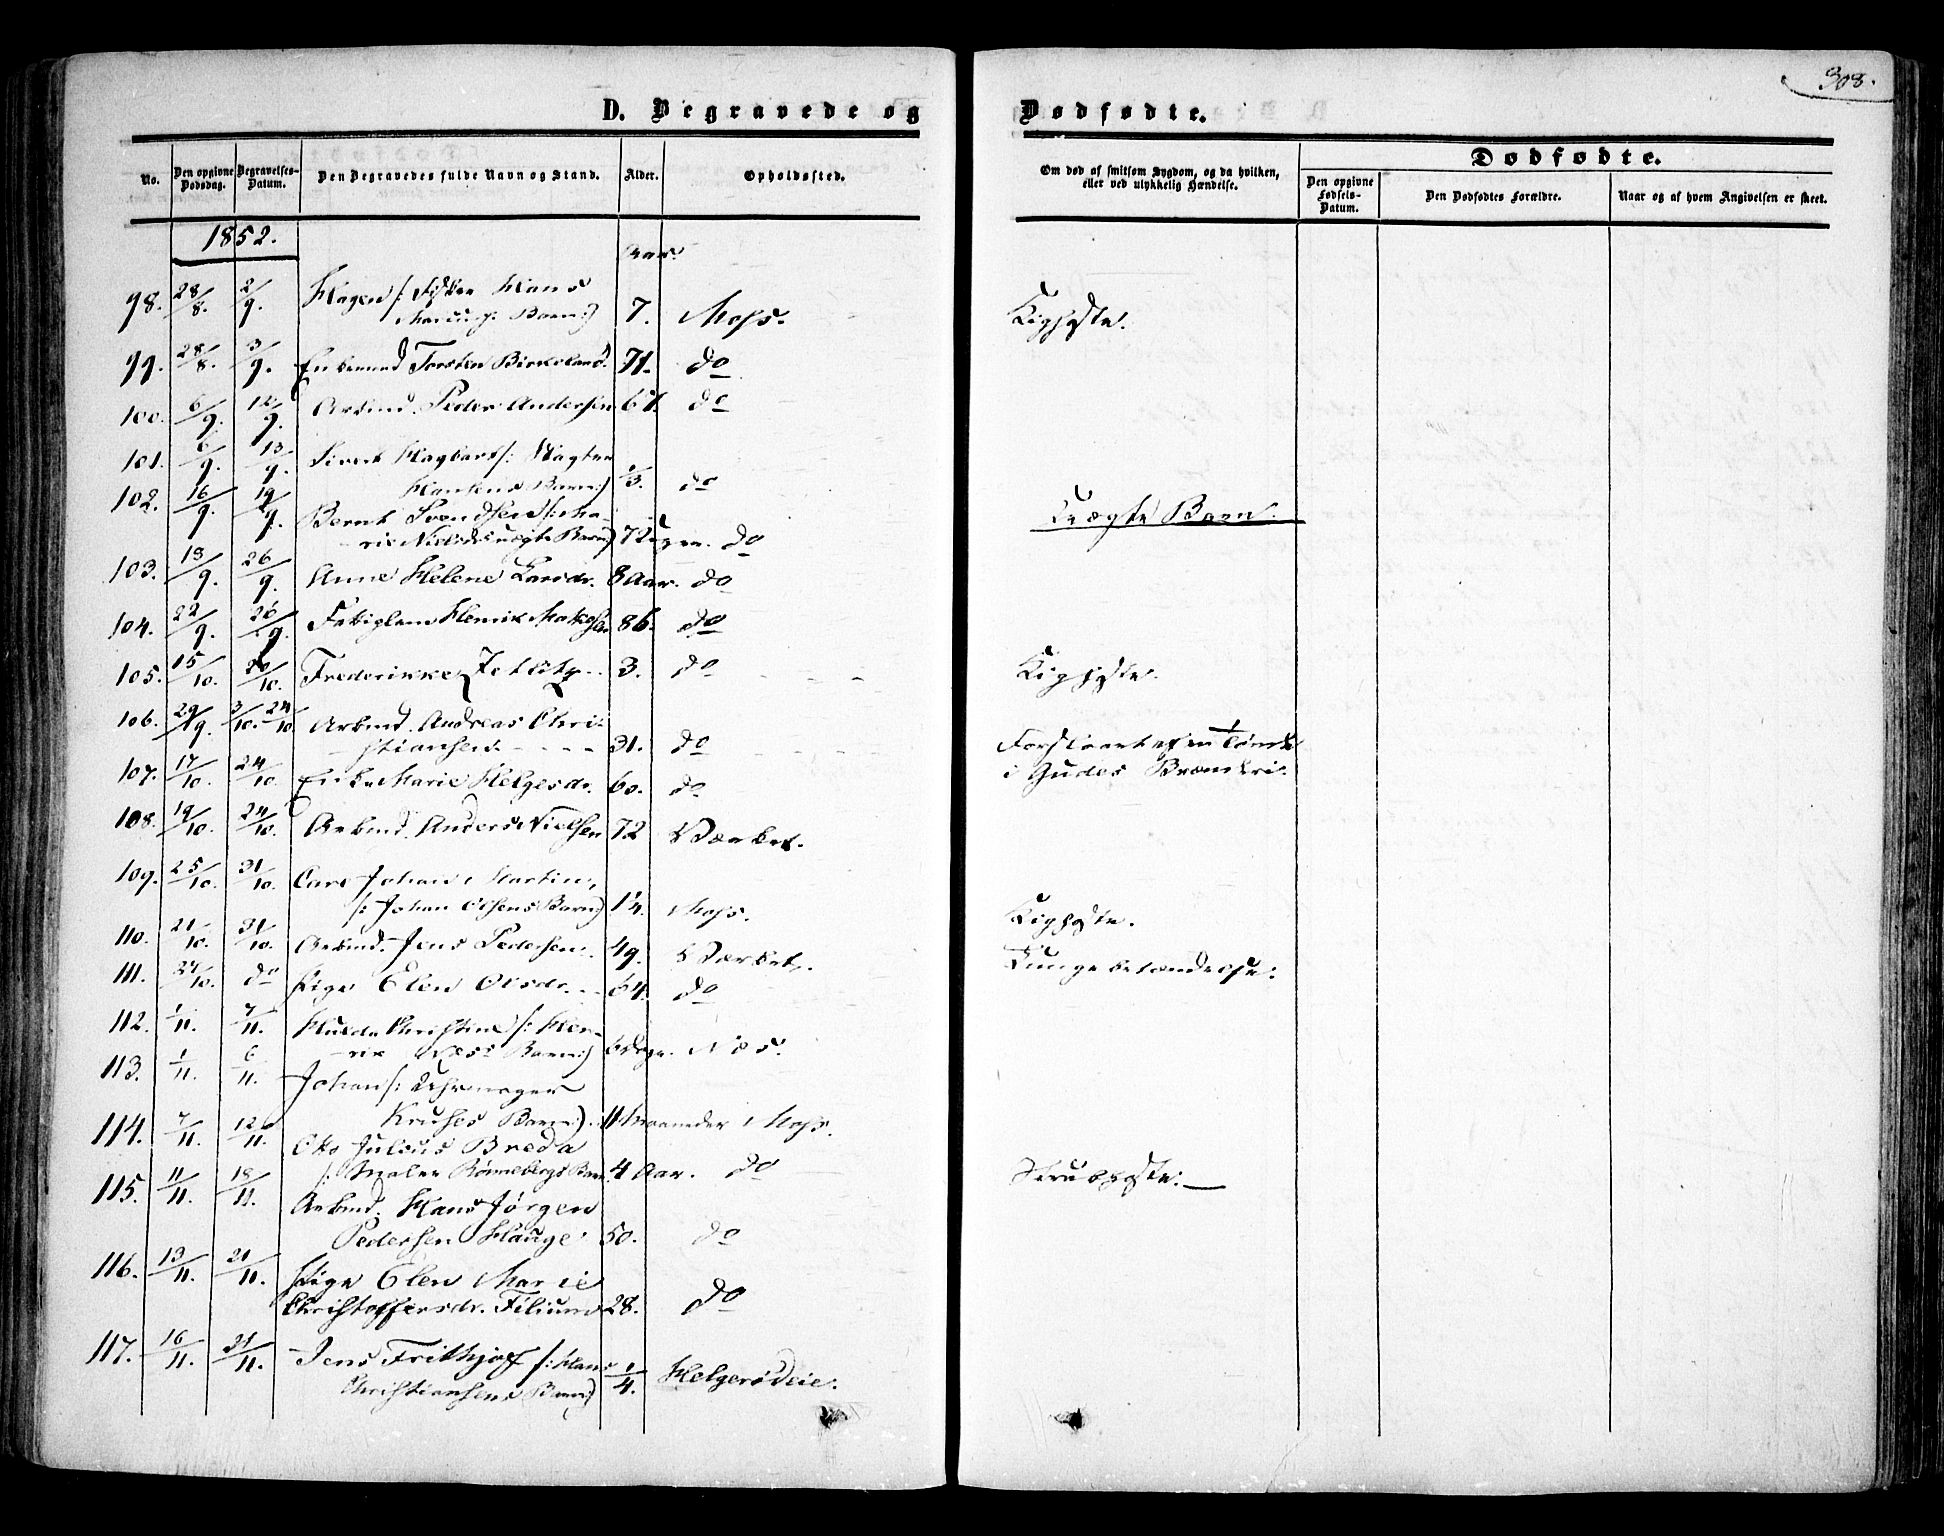 308.
D. Begravede og Dødfødte.
No.
Den opgivne Dødsdag.
Begravelses-Datum.
Den Begravedes fulde Navn og Stand.
Alder.
Opholdssted.
Om død af smitsom Sygdom, og da hvilken, eller ved ulykkelig Hændelse.
Dødfødte.
Den opgivne Fødsels-Datum.
Den Dødfødtes Forældre.
Naar og af hvem Angivelsen er skeet.
1852.
Aar.
98. 28/8. 2/9. Hagen /: Fisker Hans
Barn:) 7. Moss. Kighoste.
99. 28/8. 3/9. Enkemand Torsten Birkeland. 71. do
100. 6/9. 12/9. Arbmd. Peder Andersen 67. do
101. 6/9. 13/9. Sivert Hagbart /: Vægter
Hansens Barn:) 1/3. do
102. 16/9. 19/9. Bernt Svendsen /: Ma-
rie Nielsd. uægte Barn:) 7 Uger. do Uægte Barn.
103. 13/9. 26/9. Anne Helene Larsdr. 8 Aar. do
104. 22/9. 26/9. Fattiglem Henrik 86. do
105. 15/10. 20/10. Frederikke Zetlitz. 3. do Kighoste.
106. 29/9. 3/10. 24/10. Arbmd. Andreas Chri-
stiansen. 31. do Forslaaet af en Tønde
i Gudes Brænderi.
107. 17/10. 24/10. Enke Marie Helgesdr. 60. do
108. 19/10. 24/10. Arbmd. Anders Nielsen 72 Værket.
109. 25/10. 31/10. Carl Johan Martin,
/: Johan Olsens Barn:) 1/4. Moss. Kighoste.
110. 21/10. 31/10. Arbmd. Jens Pedersen. 49. Værket. Lungebetændelse.
111. 24/10. do Pige Elen Olsdr. 64. do
112. 1/11. 7/11. Hulda Christine /: Hen-
rik Næss Barn:) 6 Dage. Næs.
113. 1/11. 6/11. Johan /: Uhrmager
Kruses Barn:). 11 Maaneder Moss.
114. 7/11. 12/11. Otto Julius Breda
/: Maler Rønnebergs Barn 4 Aar. do Strubhoste.
115. 11/11. 18/11. Arbmd. Hans Jørgen
Pedersen Hauge 50. do
116. 13/11. 21/11. Pige Elen Marie
Christoffersdr. 28. do
117. 16/11. 21/11. Jens Frithjof /: Hans
Christiansens Barn:) 1/4. Helgerødeie.